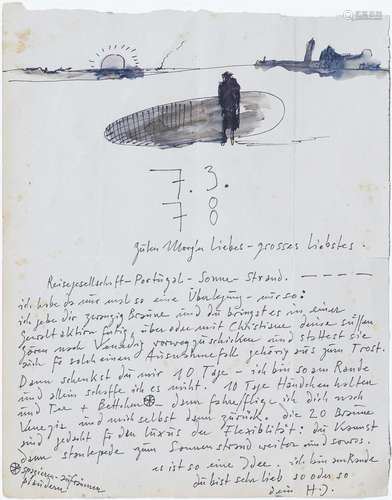 7.3.
78
Guten Morgen Liebes - grosses Liebstes.
Reisegesellschaft - Portugal - Sonne - Strand. - - - -
ich habe da nur mal so eine Überlegung - nur so:
ich gebe dir zwanzig Braune und du bringst es in einer
Gewaltaktion fertig, über oder mit Christiane deine süssen
Gören nach Venedig vorwegzuschicken und stattest sie
auch für solch einen Ausnahmefall gehörig aus zum Trost.
Dann schenkst du mir 10 Tage - ich bin so am Rande
und allein schaffe ich es nicht. 10 Tage Händchen halten
und Tee + Bettchen - dann fliege ich dich nach
Venezia und mich selbst dann zurück. die 20 Braune
sind gedacht für den Luxus der Flexiblität: du kannst
dann zum Sonnenstrand weiter und sowas.
es ist so eine Idee. ich bin am Rande
du bist sehr lieb so oder so
dein HJ.
spazieren - aufräumen
plaudern